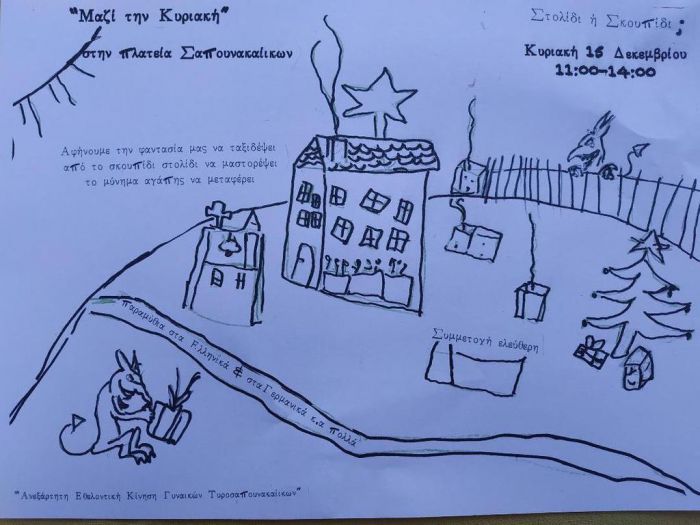 "Μαζί την Κυριακή"
στην πλατεία Σαπουνακαίικων
Στολίδι ή Σκουπίδι ;
Κυριακή 15 Δεκεμβρίου
11:00-14:00
Αφήνουμε την φαντασία μας να ταξιδέψει
από το σκουπίδι στολίδι να μαστορέψει
το μύνημα αγάπης να μεταφέρει
Συμμετοχή ελεύθερη
παραμύθια στα Ελληνικά & στα Γερμανικά κ.α πολλά
"Ανεξάρτητη Εθελοντική Κίνηση Γυναικών Τυροσαπουνακαίικων"